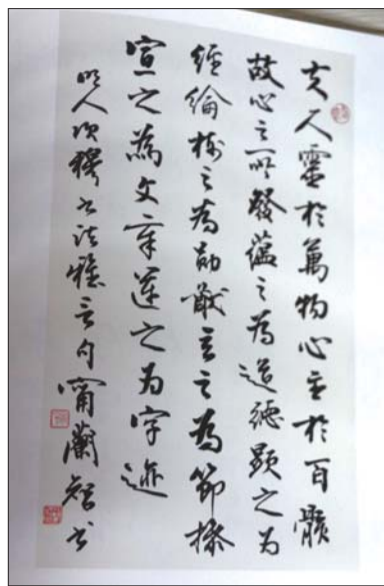 夫人靈於萬物心主於百骸
故心之所發蘊之為道德顯之為
經綸樹之為勛猷立之為節操
宣之為文章運之為字迹
明人項穆書法雅言句甯蘭智書